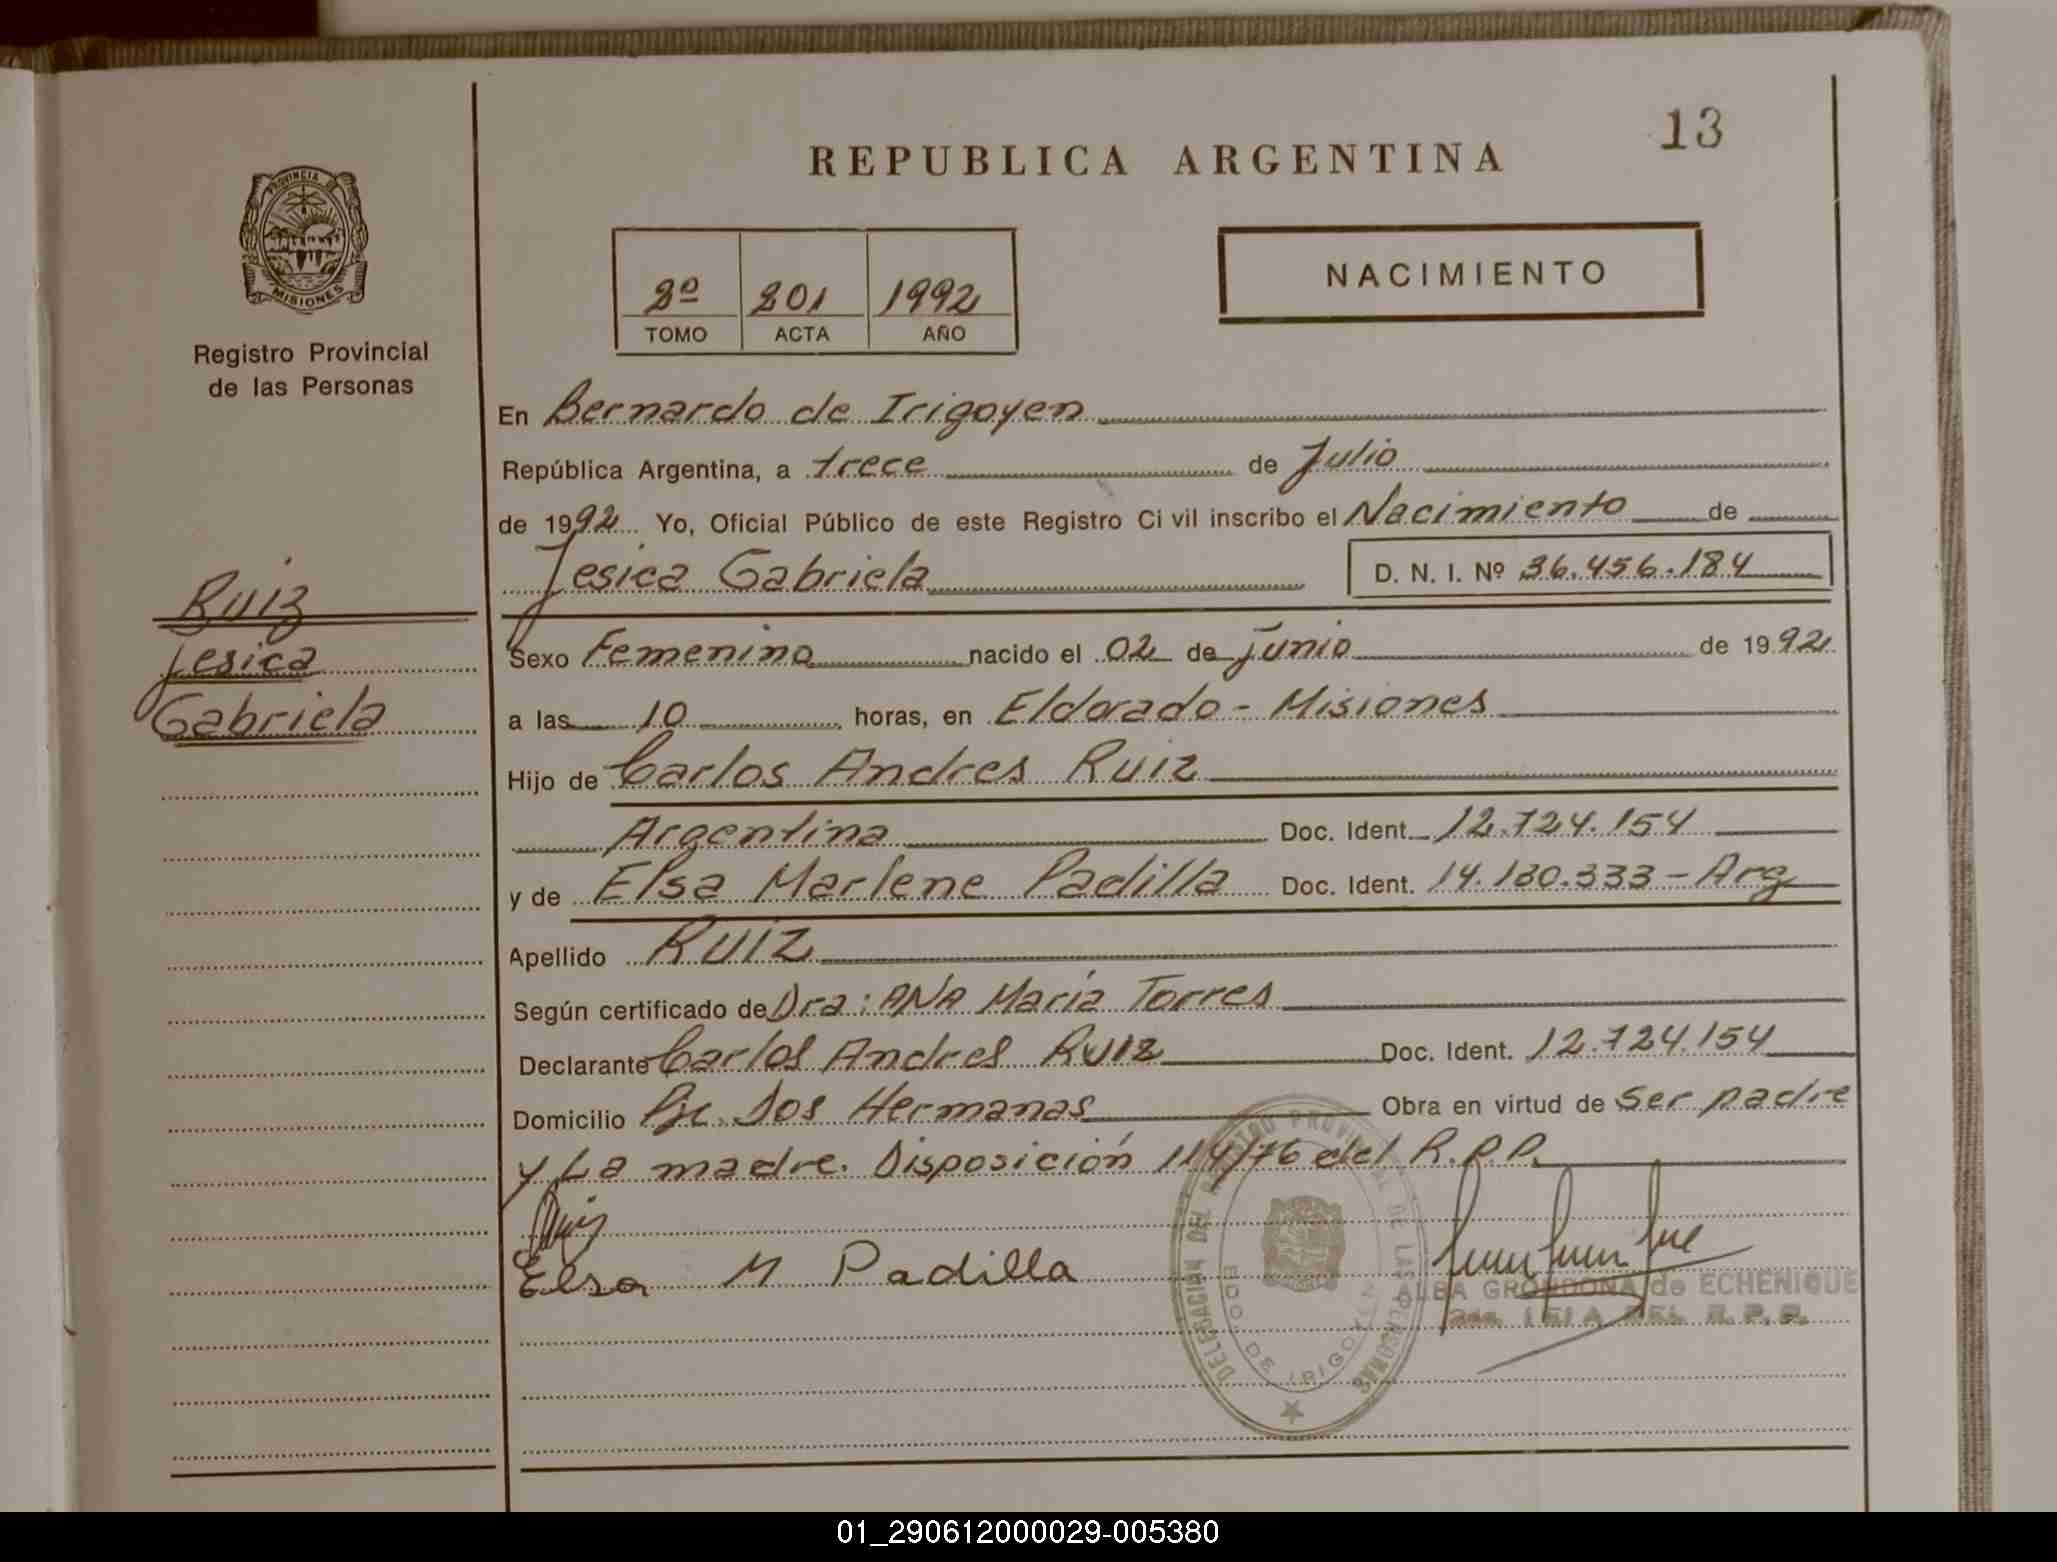 13
REPUBLICA ARGENTINA
PROVINCIA DE
MISIONES
Registro Provincial
de las Personas
2º 201 1992
TOMO ACTA AÑO
NACIMIENTO
En Bernardo de Irigoyen
República Argentina, a trece de Julio
de 1992 Yo, Oficial Público de este Registro Ci vil inscribo el Nacimiento de
Jesica Gabriela D. N. I. Nº 36.456.184
Ruiz
Jesica
Gabriela
Sexo Femenino nacido el 02 de junio de 1992
a las 10 horas, en Eldorado - Misiones
Hijo de Carlos Andres Ruiz
Argentina Doc. Ident. 12.724.154
y de Elsa Marlene Padilla Doc. Ident. 14.130.333 - Arg
Apellido Ruiz
Según certificado de Dra: ANA María Torres
Declarante Carlos Andres Ruiz Doc. Ident. 12.724.154
Domicilio Pje. Dos Hermanas Obra en virtud de ser padre
y La madre. Disposición 114/76 del R.P.P.
Ruiz
Elsa M Padilla
DELEGACION DEL REGISTRO PROVINCIAL DE LAS PERSONAS
BDO. DE IRIGOYEN
ALBA GRONDONA de ECHENIQUE
DEL R.P.P.
01_290612000029-005380